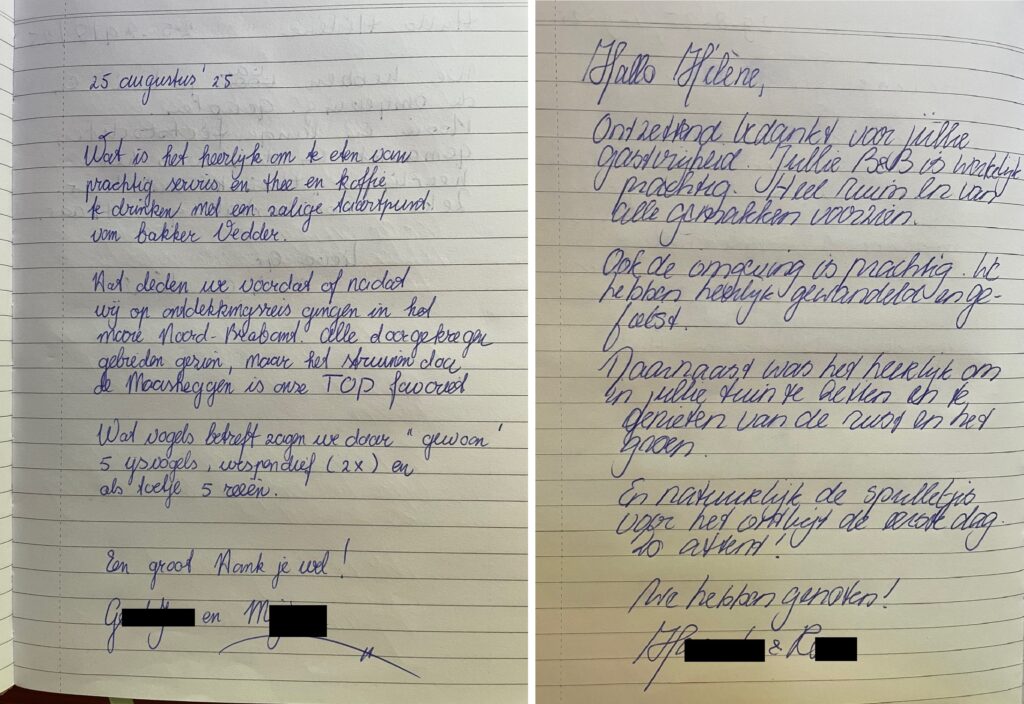 25 augustus '25
Wat is het heerlijk om te eten van
prachtig servies en thee en koffie
te drinken met een zalige taartpunt
van bakker Vedder.
Dat deden we voordat of nadat
wij op ontdekkingsreis gingen in het
mooie Noord-Brabant. Alle doorgekregen
gebieden gezien, maar het struinen door
de Maasheggen is onze TOP favoriet
Wat vogels betreft zagen we daar "gewoon"
5 ijsvogels, wespendief (2x) en
als toetje 5 reeën.
Een groot Dank je wel!
en
Hallo Hélène,
Ontzettend bedankt voor jullie
gastvrijheid. Jullie B&B is werkelijk
prachtig. Heel ruim en van
alle gemakken voorzien.
Ook de omgeving is prachtig. We
hebben heerlijk gewandeld en ge-
fietst.
Daarnaast was het heerlijk om
in jullie tuin te zitten en te
genieten van de rust en het
groen.
En natuurlijk de spulletjes
voor het ontbijt de eerste dag.
Zo attent!
We hebben genoten!
&